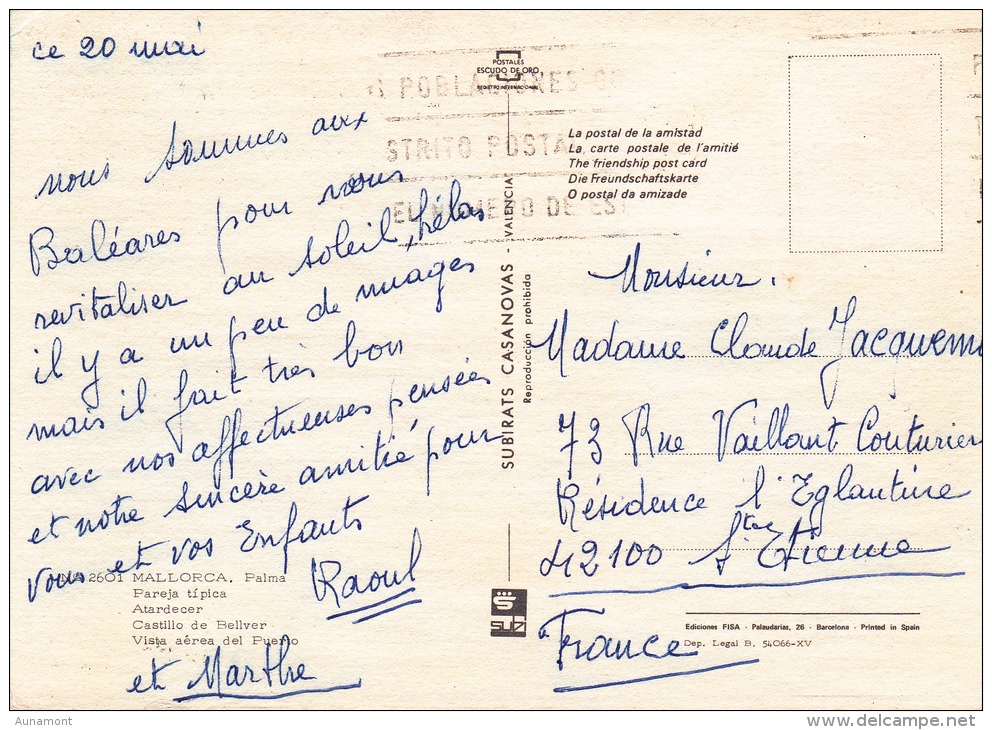 ce 20 mai
nous sommes aux
Baléares pour nous
revitaliser au soleil, hélas
il y a un peu de nuages
mais il fait très bon
avec nos affectueuses pensées
et notre sincère amitié pour
vous et vos Enfants
Raoul
et Marthe
Nº 2601 MALLORCA. Palma
Pareja típica
Atardecer
Castillo de Bellver
Vista aérea del Puerto
POSTALES
ESCUDO DE ORO
REGISTRO INTERNACIONAL
POBLACIONES
STRITO POSTA
EL NUMERO DE ES
La postal de la amistad
La carte postale de l'amitié
The friendship post card
Die Freundschaftskarte
O postal da amizade
SUBIRATS CASANOVAS - VALENCIA
Reproducción prohibida
Monsieur.
Madame Claude Jacquem
73 Rue Vaillant Couturier
Résidence l'Eglantine
42100 Ste Etienne
France
subi
Ediciones FISA - Palaudarias, 26 - Barcelona - Printed in Spain
Dep. Legal B. 54066-XV
Aunamont
www.delcampe.net